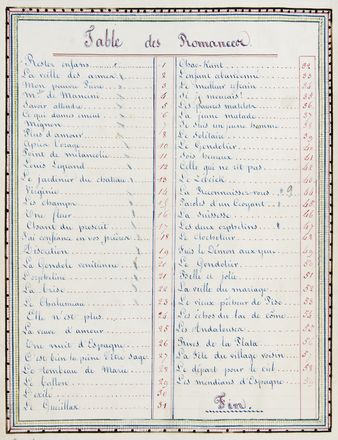 Table des Romances
Rester enfans 1
La veille des armes 2
Mon pauvre Pierre 3
Mme de Mancini 4
Savoir attendre 5
Ce que dames aiment 6
Mignon 7
Plus d'amour 8
Après l'orage 9
Point de mélancolie 10
Louis Legrand 11
Le jardinier du château 12
Virginie 14
Les champs 15
Une fleur 16
Chant du proscrit 17
J'ai confiance en vos prières 18
Discrétion 19
La Gondole vénitienne 20
L'orpheline 21
La brise 22
Le Chalumeau 23
Elle n'est plus 24
La veuve d'amour 25
Une nuit d'Espagne 26
C'est bien la peine d'être sage 27
Le tombeau de Marie 28
Le Ballon 29
L'exilé 30
Le 31
32
L'enfant 33
Le 34
Si j'mourais 35
Les pauves matelots 36
La jeune malade 37
Je suis un jeune homme 38
Le Solitaire 39
Le Gondolier 40
Sois heureux 41
Celle qui ne rit pas 42
Le Zéphir 43
La Reconnaissez-vous 44
Paroles d'un Croyant 45
La Suissesse 46
Les deux orphelins 47
Le Clocheteur 48
Suis le Démon aux yeux 49
Le Gondolier 50
Belle et jolie 51
La veille du mariage 52
Le vieux pêcheur de Pise 53
Les échos du lac de Côme 54
Les Andalouses 55
Rives de la Plata 56
La fête du village voisin 57
Le départ pour le ciel 58
Les mendians d'Espagne 59
Fin.